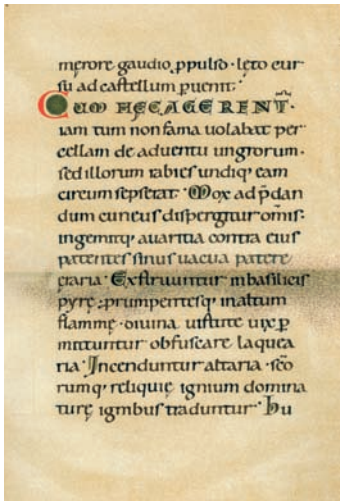 merore gaudio ꝓpulso · lęto cur
su ad castellum ꝑuenit;
CUM HEC AGERENT̅.
iam tum non fama uolabat per
cellam de aduentu ungrorum ·
sed illorum rabies undiqꝫ eam
circumsepserat · Mox ad p̄dan
dum cuneus dispergitur om̄is ·
ingemitqꝫ auaritia contra eius
patentes sinus uacua patere
ęraria · Exstruuntur in basilicis
pyrę · prumpentesqꝫ in altum
flammę · diuina uirtute uix ꝑ
mittuntur obfuscare laquea
ria · Incenduntur altaria · sc̄o
rumqꝫ reliquię ignium domina
turę ignibus traduntur · Hu